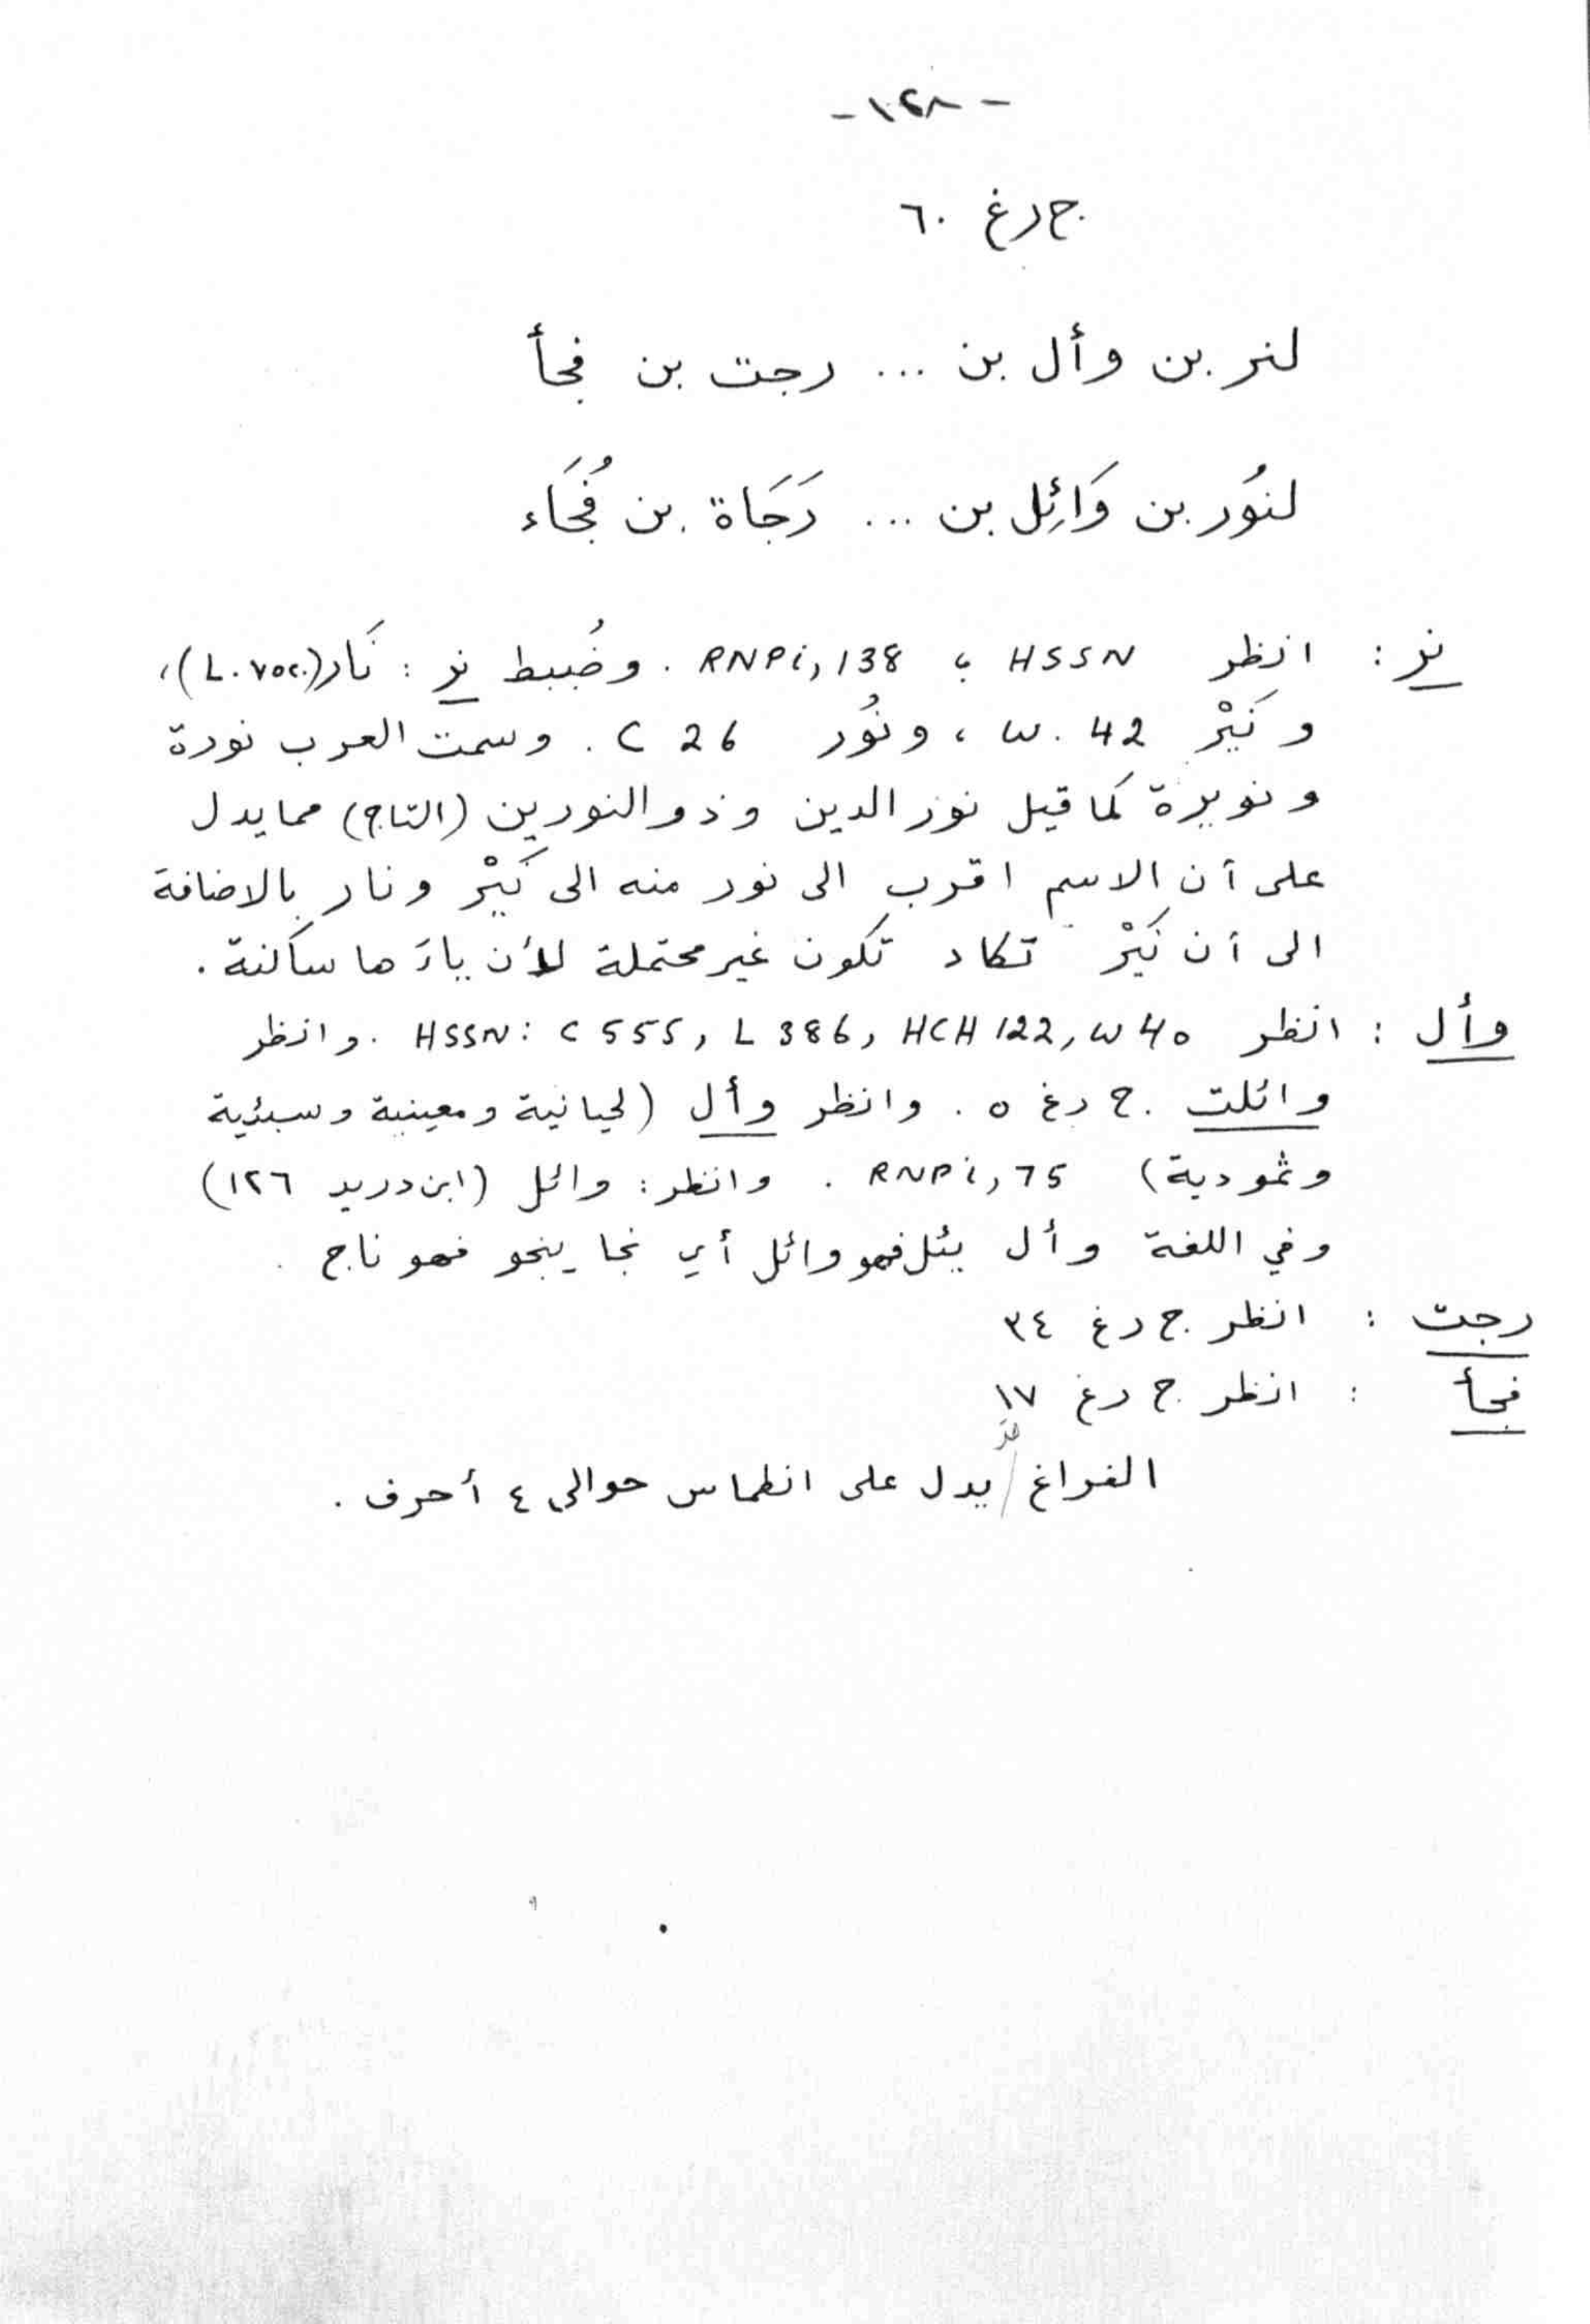 -١٢٨-
ج رغ ٦٠
لنر بن وأل بن ... رجت بن فجأ
لنُور بن وَائِل بن ... رَجَاة بن فُجَاء
نر : انظر HSSN ؛ RNPi, 138 . وضُبط نر : نَار (L. voc.)،
ونَيْر W. 42 ، ونُور C 26 . وسمت العرب نورة
ونويرة كما قيل نور الدين وذو النورين (التاج) مما يدل
على أن الاسم اقرب الى نور منه الى نَيْر ونار بالاضافة
الى أن نَيْر تكاد تكون غير محتملة لأن ياءَها ساكنة .
وأل : انظر HSSN: C 555, L 386, HCH 122, W 40 . وانظر
وائلت ج رغ ٥ . وانظر وأل (لحيانية ومعينية وسبئية
وثمودية) RNPi, 75 . وانظر : وائل (ابن دريد ١٢٦)
وفي اللغة وأل يئل فهو وائل أي نجا ينجو فهو ناج .
رجت : انظر ج رغ ٣٤
فجأ : انظر ج رغ ١٧
الفراغ يدل على انطماس حوالى ٤ أحرف .